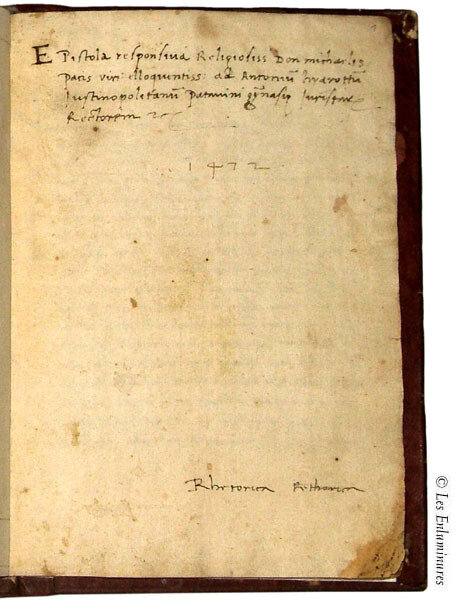 EPistola responsiva Religiosiss Don michaelis
Pacis viri elloquentiss: ad Antoniũ
Iustinopolitanũ Patavini gỹnasij Iurispe
Rectorem
1472
Rhetorica Rethorica
© Les Enluminures